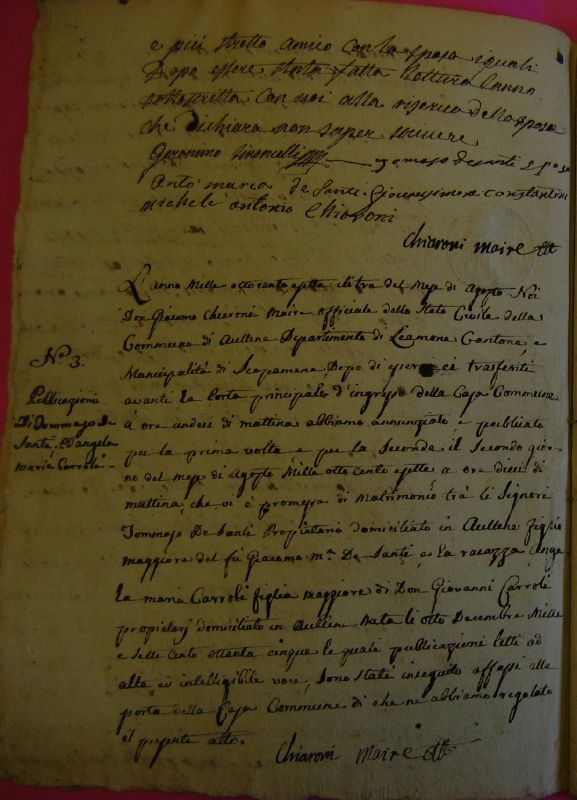 e più stretto amico con la sposa i quali
Dopo essere stata fatta lettura hanno
sottoscritto con noi alla riserva della sposa
che dichiara non saper scrivere
Geronimo Simonelli tomaso de santi sposo
Anto maria de Santi Constantini
michele antonio Chiaroni
Chiaroni maire
L'anno Mille otto cento e sette li tre del Mese di Agosto Noi
Don Giacomo Chiaroni Maire officiale dello Stato Civile della
Commune di Aullene Dipartimento di Leamone Cantone, e
Municipalità di Scopamene, Dopo di esserci trasferiti
avanti la Porta principale d'ingresso della Casa Commune
a ore undeci di mattina abbiamo annunziato e publicato
per la prima volta e per la Seconda il Secondo gior-
no del Mese di Agosto Mille otto Cento e sette a ore dieci di
mattina che vi è promessa di Matrimonio trà li Signori
Tommaso De Santi Propietario domiciliato in Aullene figlio
maggiore del fù Giacomo m.ª De Santi e La racazza Ange
La maria Carroli figlia maggiore di Don Giovanni Carroli
propietarj domiciliato in Aullene Nata li otto Decembre Mille
e Sette Cento ottanta cinque le quali publicazioni lette ad
alta ed intelligibile voce, Sono State in seguito affisse alla
porta della Casa Commune di che ne abbiamo regolato
il presente atto.
Chiaroni Maire
N.º 3.
Publicazioni
Di Dommaso De
Santi, ed Angela
Maria Carroli